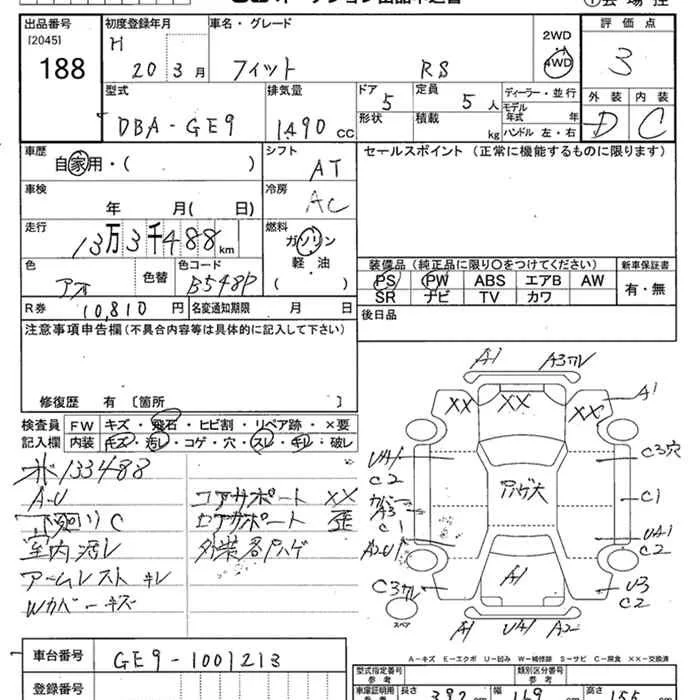 出品番号 初度登録年月 車名・グレード 2WD 評価点
[2045] H 4WD
188 20 3月 フィット RS 3
型式 排気量 ドア 5 定員 5人 ディーラー・並行 外装 内装
DBA-GE9 1490cc 形状 積載 kg モデル年式 年 D C
ハンドル 左・右
車歴 シフト セールスポイント (正常に機能するものに限ります)
自家用・( ) AT
車検 冷房
年 月( 日) AC
走行 燃料
13万3千488km ガソリン
軽・油 装備品 (純正品に限り○をつけてください) 新車保証書
色 色替 色コード ( ) PS PW ABS エアB AW 有・無
アオ B548P SR ナビ TV カワ
R券 10,810円 名変通知期限 月 日 後日品
注意事項申告欄 (不具合内容等は具体的に記入して下さい)
修復歴 有 〔箇所 〕
検査員 FW キズ・飛石・ヒビ割・リペア跡・×要
記入欄 内装 キズ・汚レ・コゲ・穴・スレ・キレ・破レ
133488
A-U コアサポート XX
下廻り C コアサポート 歪
室内汚レ 外装各所ハゲ
アームレスト キレ
Wカバーキズ
A1 A3ワレ
XX XX XX A1
UA1 C3穴
C2
カバー ハゲ大 C1
A3
C1 UA1
A2U1 C2
C3ワレ A1 U3
C2
スペア A1 UA1 A2
A-キズ E-エクボ U-凹み W-補修跡 S-サビ C-腐食 XX-交換済
車台番号 GE9-1001213
登録番号
型式指定番号 参考 類別区分番号 参考
車庫証明用 参考 長さ 392cm 幅 169cm 高さ 155cm